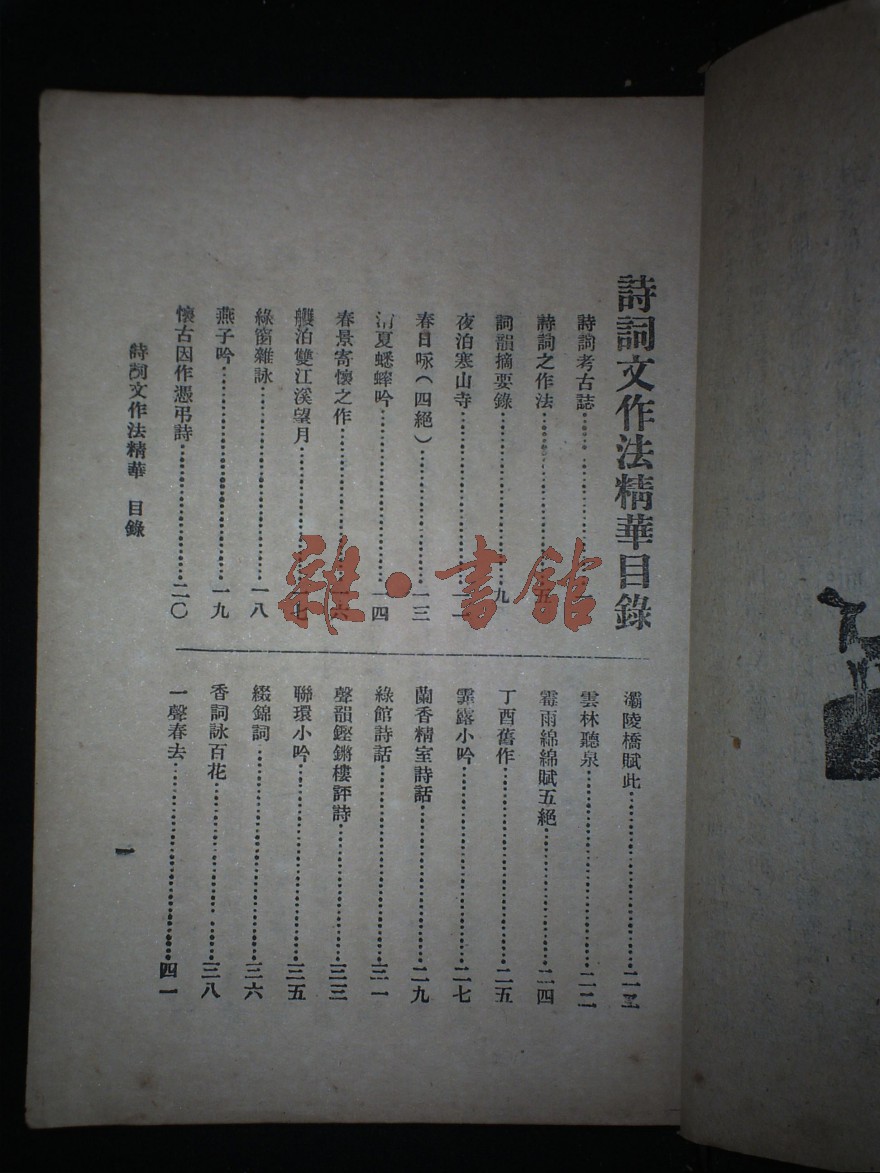 詩詞文作法精華目錄
詩詞考古誌
詩詞之作法 五
詞韻摘要錄 九
夜泊寒山寺
春日咏（四絕） 一三
清夏蟋蟀吟 一四
春景寄懷之作 一六
艭泊雙江溪望月 一七
綠窗雜詠 一八
燕子吟 一九
懷古因作憑弔詩 二〇
灞陵橋賦此
雲林聽泉 二二
霉雨綿綿賦五絕 二四
丁酉舊作 二五
霏露小吟 二七
蘭香精室詩話 二九
綠館詩話 三一
聲韻鏗鏘樓評詩 三三
聯環小吟 三五
綴錦詞 三六
香詞詠百花 三八
一聲春去 四一
詩詞文作法精華 目錄
一
雜·書館